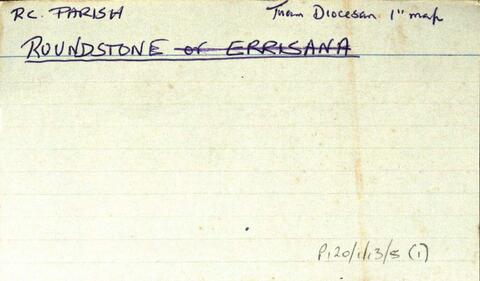 RC. PARISH Tuam Diocesan 1" map
ROUNDSTONE or ERRISANA
P120/1/13/8 (1)